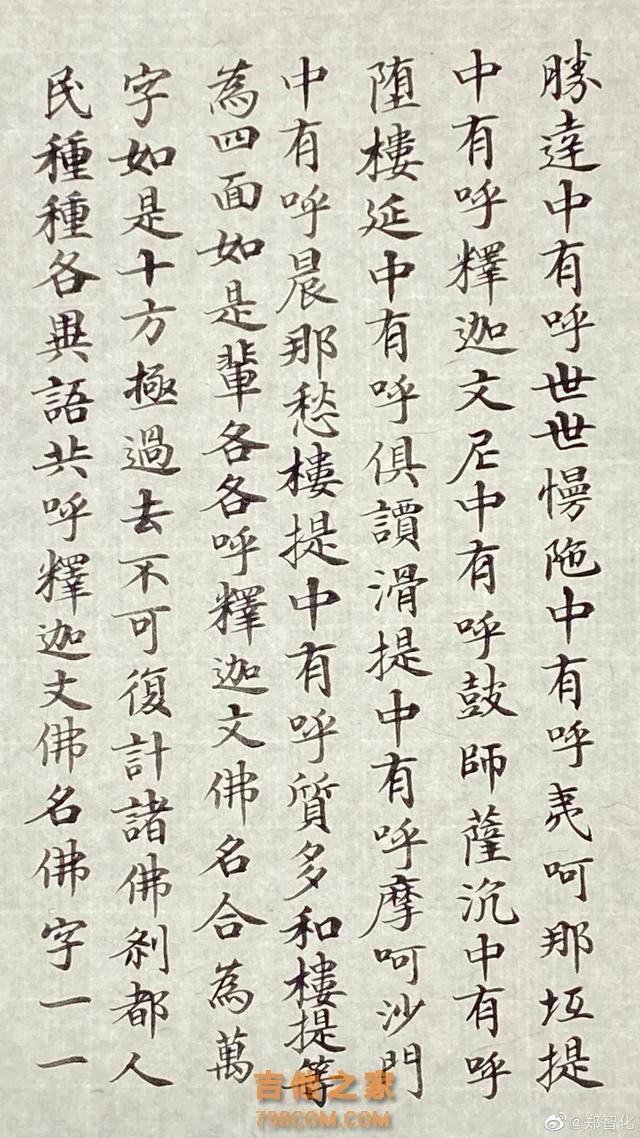 勝達中有呼世世慢陁中有呼夷呵那坻提
中有呼釋迦文尼中有呼鼓師薩沉中有呼
堕樓延中有呼俱讀滑提中有呼摩呵沙門
中有呼晨那愁樓提中有呼質多和樓提等
為四面如是輩各各呼釋迦文佛名合為萬
字如是十方極過去不可復計諸佛刹都人
民種種各異語共呼釋迦文佛名佛字一一
吉他之家
798COM.COM
@郑智化